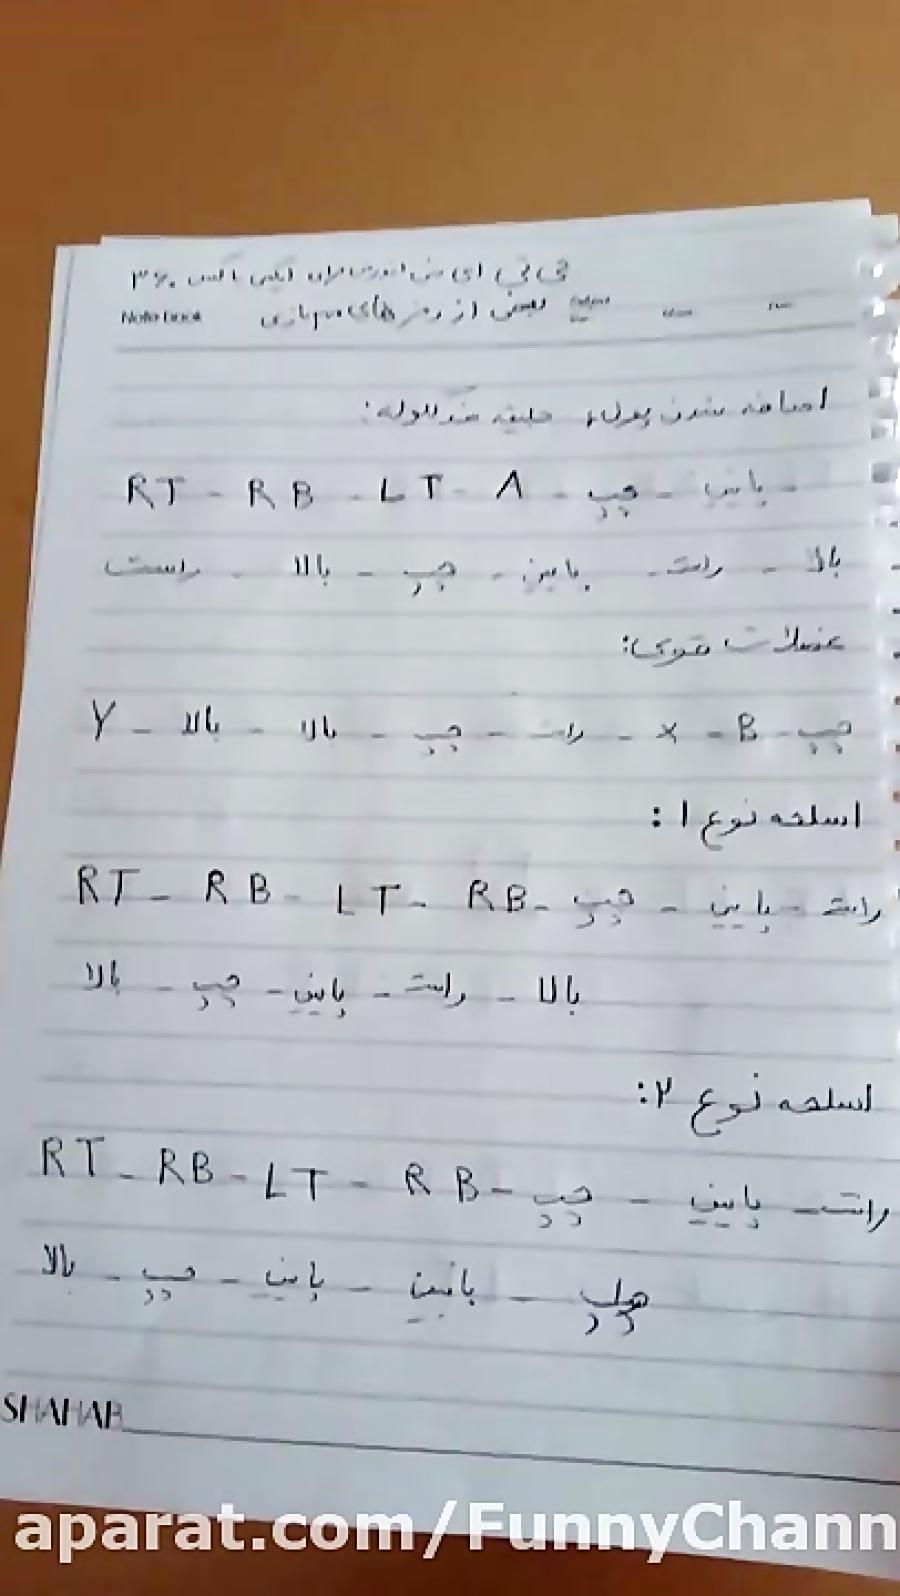 جی تی ای سن اندرس برای ایکس باکس ۳۶۰
Note book بعضی از رمز های بازی
اضافه شدن پول، جلیقه ضدگلوله:
RT - RB - LT - A - چپ - پایین -
بالا - راست - پایین - چپ - بالا - راست
عضلات قوی:
چپ - B - X - راست - چپ - بالا - بالا - Y
اسلحه نوع ۱:
RT - RB - LT - RB - چپ - پایین - راست
بالا - راست - پایین - چپ - بالا
اسلحه نوع ۲:
RT - RB - LT - RB - چپ - پایین - راست
چپ - پائین - پایین - چپ - بالا
SHAHAB
aparat.com/FunnyChann